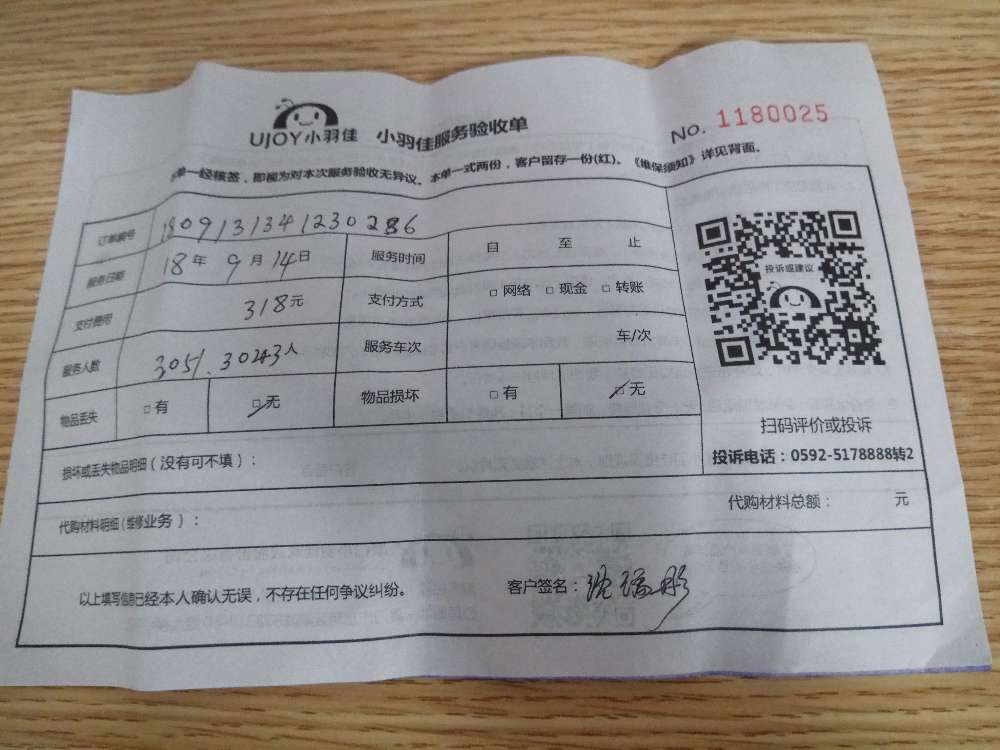 UJOY小羽佳 小羽佳服务验收单 No. 1180025
单一经核签，即视为对本次服务验收无异议。本单一式两份，客户留存一份(红)。《维保须知》详见背面。
订单编号 1809131341230286
服务日期 18年9月14日 服务时间 自 至 止
支付费用 318元 支付方式 □网络 □现金 □转账
服务人数 3051.30243人 服务车次 车/次
物品丢失 □有 □无 物品损坏 □有 □无
投诉或建议
扫码评价或投诉
投诉电话：0592-5178888转2
损坏或丢失物品明细（没有可不填）：
代购材料明细（维修业务）： 代购材料总额： 元
以上填写信息已经本人确认无误，不存在任何争议纠纷。 客户签名：